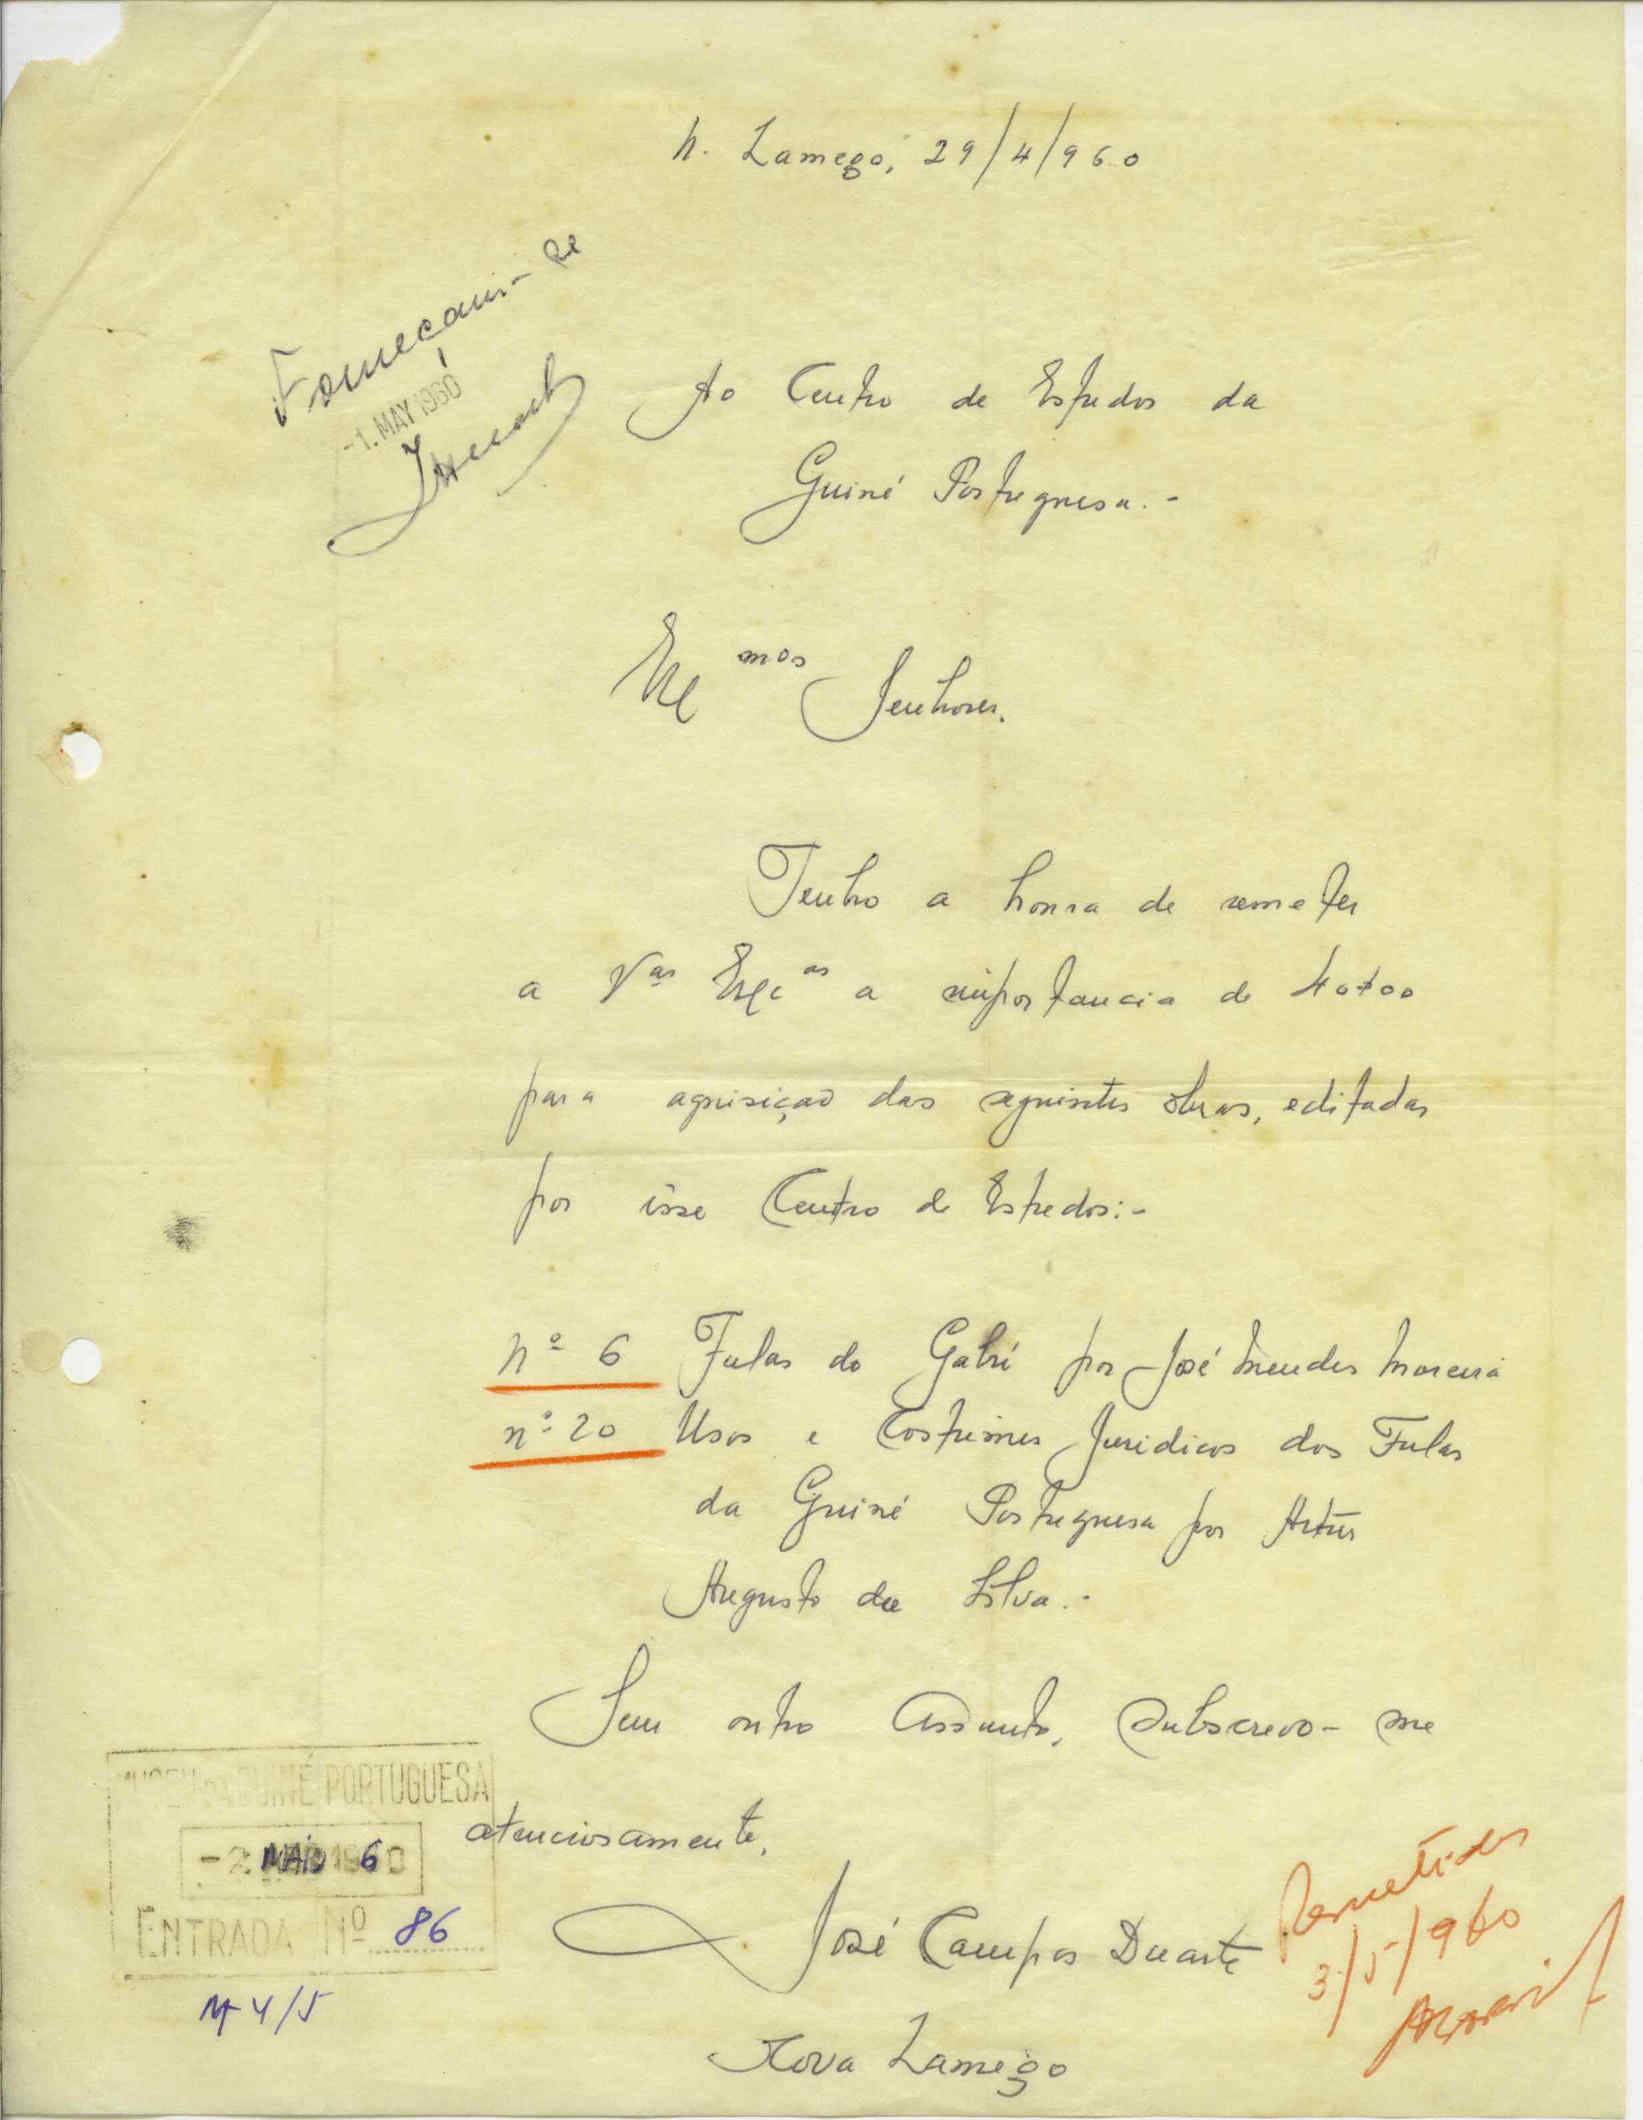 N. Lamego, 29/4/960
Forneçam-se
-1. MAY 1960
Ao Centro de Estudos da
Guiné Portuguesa.-
Exc mos Senhores.
Tenho a honra de remeter
a Vas Excas a importancia de 40$00
para aquisição das seguintes obras, editadas
por êsse Centro de Estudos:-
nº 6 Fulas do Gabú por José Mendes Moreira
nº 20 Usos e Costumes Juridicos dos Fulas
da Guiné Portuguesa por Artur
Augusto da Silva.-
Sem outro assunto, subscrevo-me
atenciosamente,
José Campos Duarte
Nova Lamego
MUSEU DA GUINÉ PORTUGUESA
-2. MAIO 1960
ENTRADA Nº 86
4/5
Remetidos
3/5/960